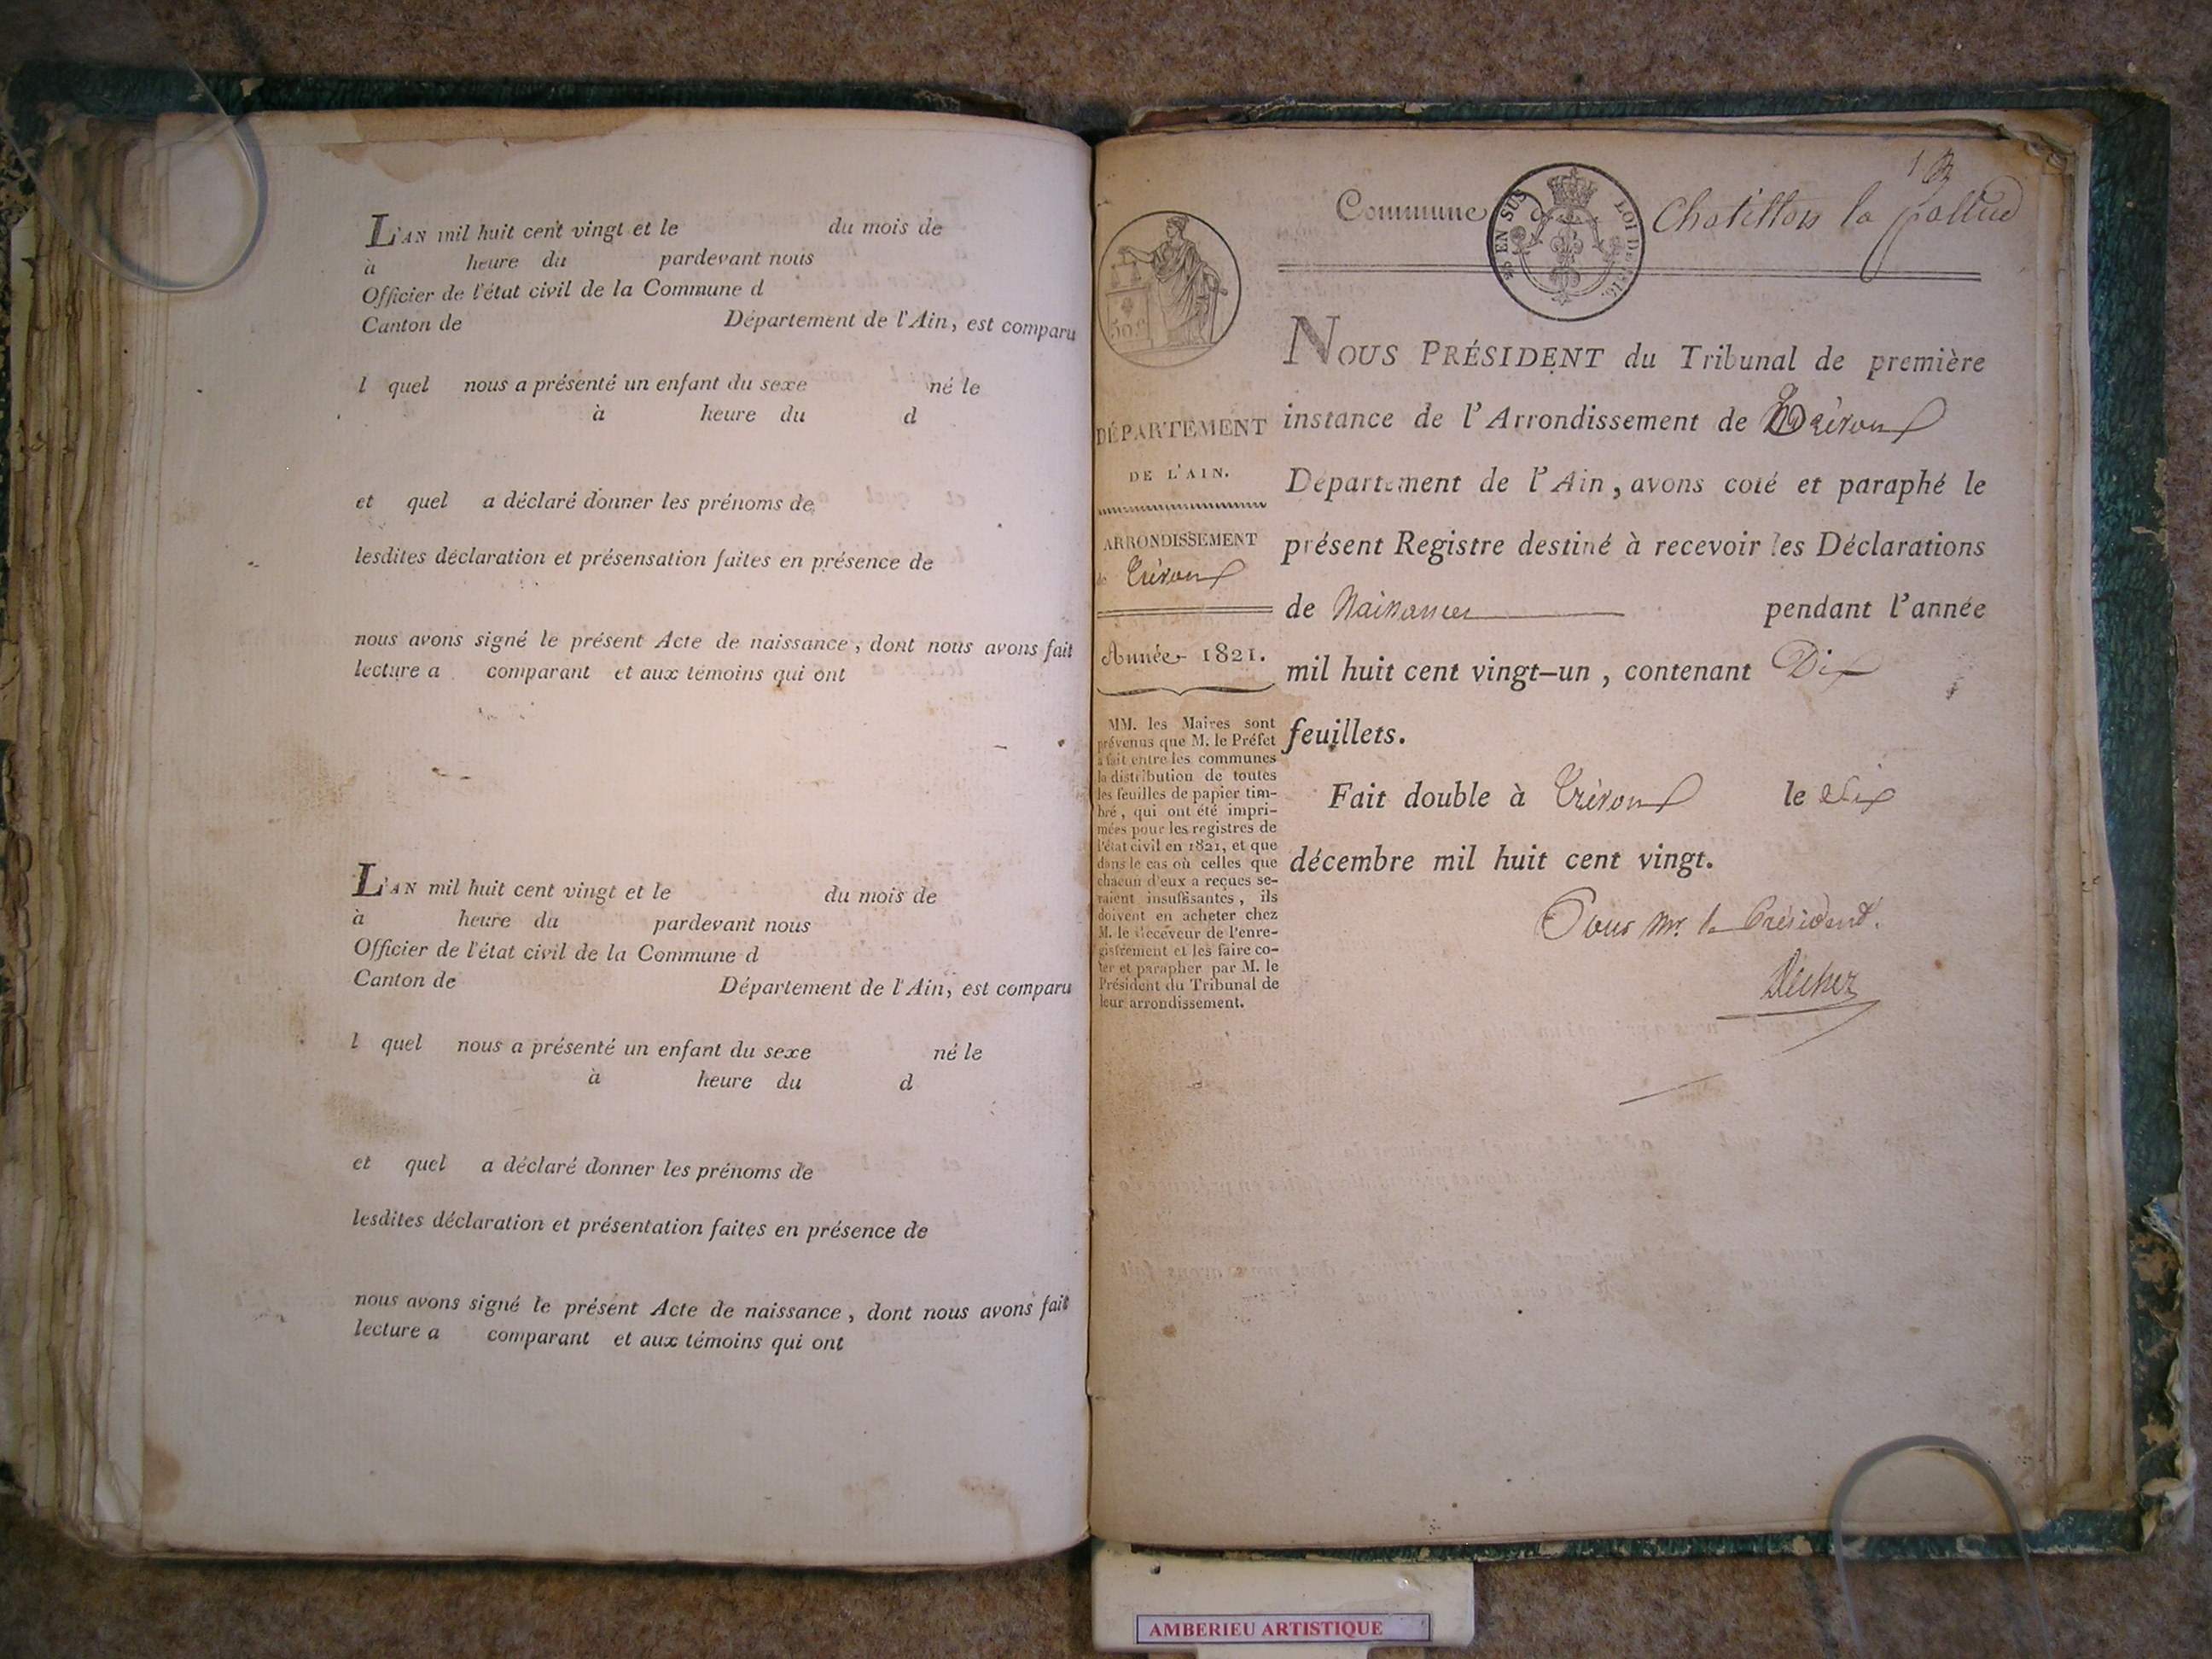 L'AN mil huit cent vingt et le du mois de
à heure du pardevant nous
Officier de l'état civil de la Commune d
Canton de Département de l'Ain, est comparu
l quel nous a présenté un enfant du sexe né le
à heure du d
et quel a déclaré donner les prénoms de
lesdites déclaration et présensation faites en présence de
nous avons signé le présent Acte de naissance, dont nous avons fait
lecture a comparant et aux témoins qui ont
L'AN mil huit cent vingt et le du mois de
à heure du pardevant nous
Officier de l'état civil de la Commune d
Canton de Département de l'Ain, est comparu
l quel nous a présenté un enfant du sexe né le
à heure du d
et quel a déclaré donner les prénoms de
lesdites déclaration et présentation faites en présence de
nous avons signé le présent Acte de naissance, dont nous avons fait
lecture a comparant et aux témoins qui ont
Commune d Chatillon la pallud
EN SUS LOI DE
50c
DÉPARTEMENT
DE L'AIN.
ARRONDISSEMENT
de Trévoux
Année 1821.
MM. les Maires sont
prévenus que M. le Préfet
a fait entre les communes
la distribution de toutes
les feuilles de papier tim-
bré, qui ont été impri-
mées pour les registres de
l'état civil en 1821, et que
dans le cas où celles que
chacun d'eux a reçues se-
raient insuffisantes, ils
doivent en acheter chez
M. le Receveur de l'enre-
gistrement et les faire co-
ter et parapher par M. le
Président du Tribunal de
leur arrondissement.
NOUS PRÉSIDENT du Tribunal de première
instance de l'Arrondissement de Trévoux
Département de l'Ain, avons coté et paraphé le
présent Registre destiné à recevoir les Déclarations
de Naissances pendant l'année
mil huit cent vingt-un, contenant Dix
feuillets.
Fait double à Trévoux le Six
décembre mil huit cent vingt.
Pour Mr. le Président.
AMBERIEU ARTISTIQUE